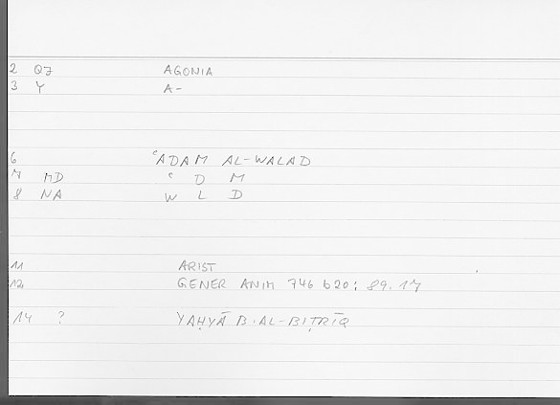 2 QJ AGONIA
3 Y A-
6 ʿADAM AL-WALAD
7 MD ʿ D M
8 NA W L D
11 ARIST
12 GENER ANIM 746 b20: 89.17
14 ? YAḤYĀ B. AL-BIṬRĪQ